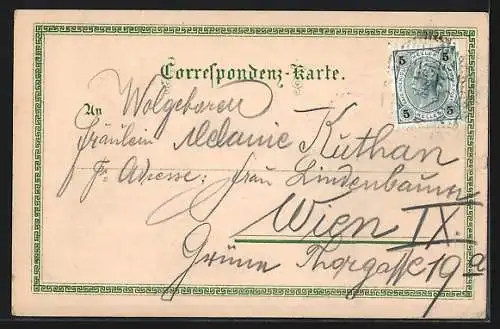 Correspondenz-Karte.
An Wolgeboren
Fräulein Melanie Kuthan
p. Adresse: Frau Lindenbaum
Wien IX.
Grüne Thorgasse 19a
5 5
5 5